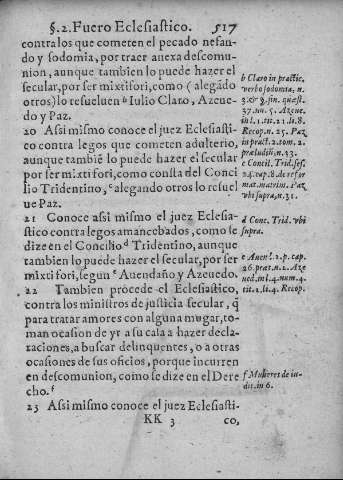 §. 2. Fuero Eclesiastico. 517
contra los que cometen el pecado nefan-
do y sodomia, por traer anexa descomu-
nion, aunque tambien lo puede hazer el
secular, por ser mixti fori, como (alegãdo
otros) lo resueluen ᵇ Iulio Claro, Azeue-
do y Paz.
20 Assi mismo conoce el juez Eclesiasti-
co contra legos que cometen adulterio,
aunque tambiẽ lo puede hazer el secular
por ser mixti fori, como consta del Conci
lio Tridentino, ᶜ alegando otros lo resuel
ue Paz.
21 Conoce assi mismo el juez Eclesias-
tico contra legos amancebados, como se
dize en el Concilio ᵈ Tridentino, aunque
tambien lo puede hazer el secular, por ser
mixti fori, segun ᵉ Auendaño y Azeuedo.
22 Tambien procede el Eclesiastico,
contra los ministros de justicia secular, q̃
para tratar amores con alguna muger, to-
man ocasion de yr a su casa a hazer decla-
raziones, a buscar delinquentes, o a otras
ocasiones de sus oficios, porque incurren
en descomunion, como se dize en el Dere
cho. ᶠ
23 Assi mismo conoce el juez Eclesiasti-
KK 3 co,
b Claro in practic.
verbo sodomia, n.
3. & §. fin. quæst.
37. nu. 5. Azeue
in l. 1. tit. 21. li. 8.
Recop. n. 25. Paz
in pract. 2. tom. 2.
præludiũ, n. 23.
c Concil. Trid. ses.
24. cap. 8. de refor
mat. matrim. Paz
vbi supra, n. 31.
d Conc. Trid. vbi
supra.
e Auen l. 2. p. cap.
26. præt. n. 2. Aze
ued. in l. 4. num. 4.
tit. 1. li. 4. Recop.
f Mulieres de iu-
dit. in 6.